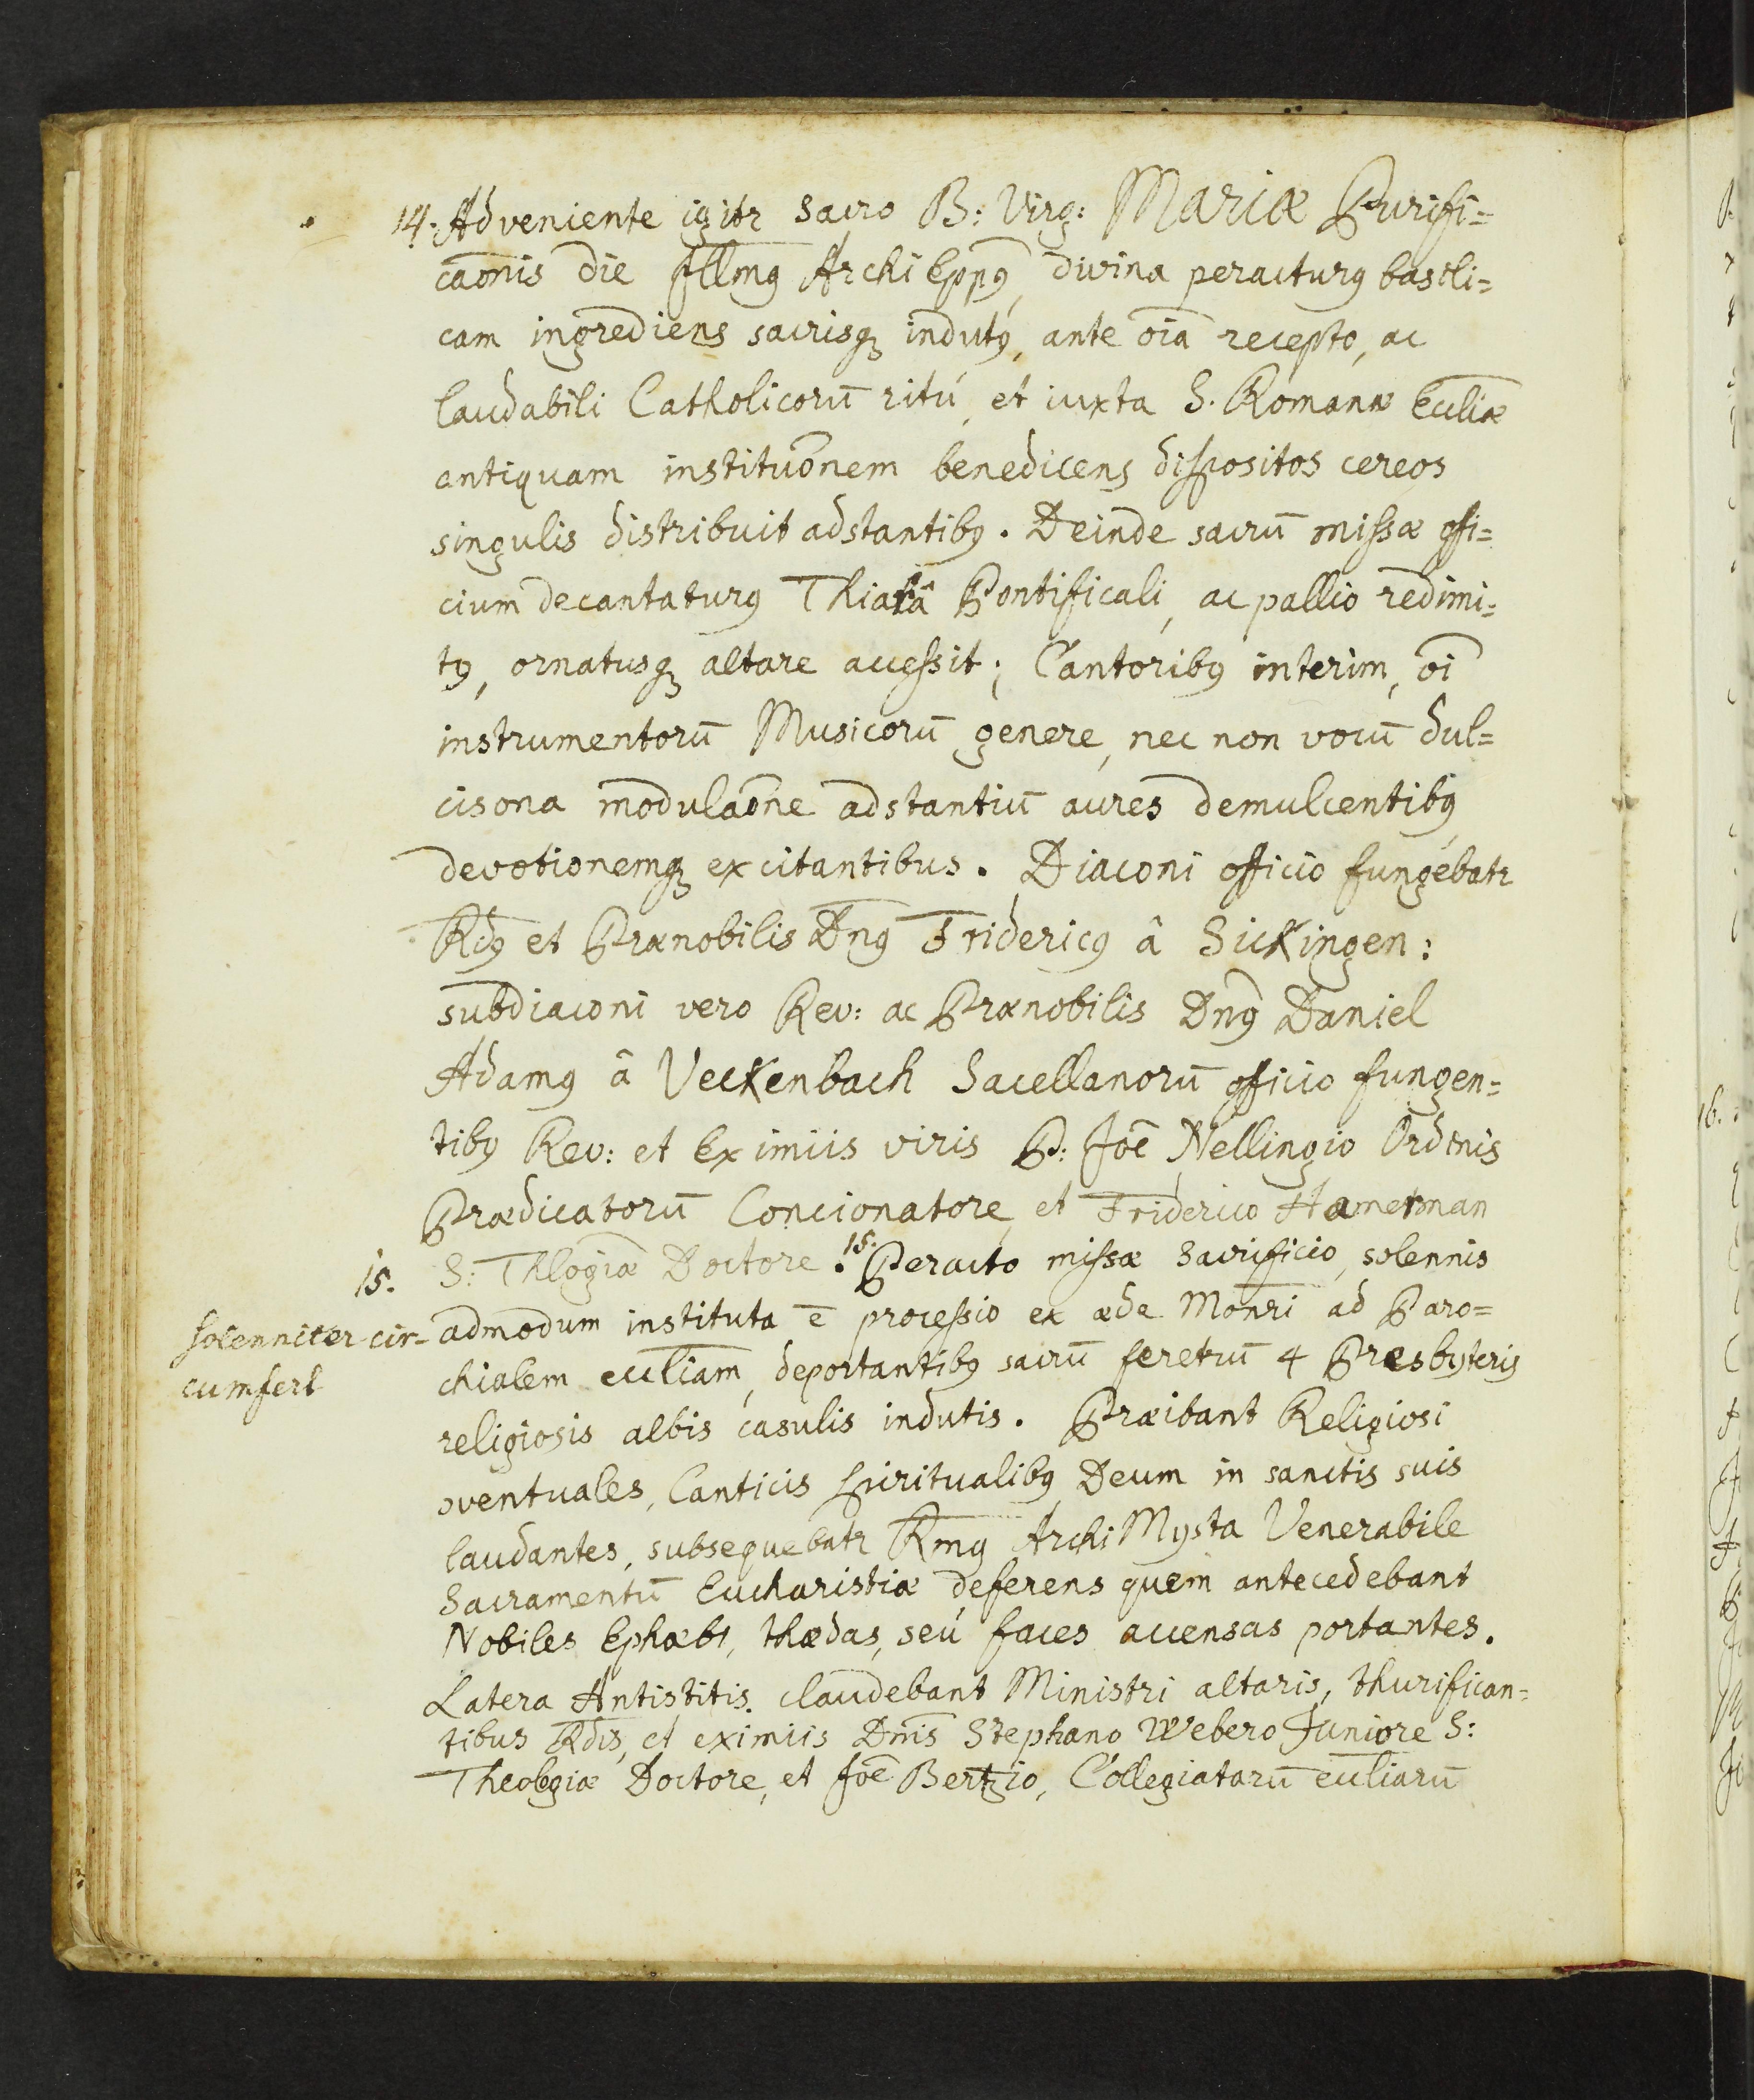 14. Adveniente igitr sacro B: Virg: Mariæ Purifi=
caõnis die Illmꝰ ArchiEppꝰ, divina peracturꝰ basili=
cam ingrediens sacrisqꝫ indutꝰ, ante oĩa recepto, ac
laudabili Catholicorū ritú, et iuxta S. Romanæ Eccliæ
antiquam instituõnem benedicens dispositos cereos
singulis distribuit adstantibꝰ. Deinde sacrū missæ offi=
cium decantaturꝰ Thiarâ Pontificali, ac pallio redimi=
tꝰ, ornatusqꝫ altare accessit; Cantoribꝰ interim, oĩ
instrumentorū Musicorū genere, nec non vocū dul=
cisona modulaõne adstantiū aures demulcentibꝰ,
devotionemqꝫ excitantibus. Diaconi officio fungebatr
Rdꝰ et Prænobilis Dnꝰ Fridericꝰ â Sickingen:
subdiaconi vero Rev: ac Prænobilis Dnꝰ Daniel
Adamꝰ â Veckenbach Sacellanorū officio fungen=
tibꝰ Rev: et Eximiis viris P: Joẽ Nellingio Ordinis
Prædicatorū Concionatore, et Friderico Hamerman
15. S: Thlogiæ Doctore. 15. Peracto missæ Sacrificio, solennis
solenniter cir-
cumfert
admodum instituta ē processio ex æde Monrĩ ad Paro=
chialem eccliam, deportantibꝰ sacrū feretrū 4 Presbyteris
religiosis albis casulis indutis. Præibant Religiosi
ↄventuales, Canticis spiritualibꝰ Deum in sanctis suis
laudantes, subsequebatr Rmꝰ ArchiMysta Venerabile
Sacramentū Eucharistiæ deferens quem antecedebant
Nobiles Ephæbi, thædas, seú faces accensas portantes.
Latera Antistitis claudebant Ministri altaris, thurifican=
tibus Rdis, et eximiis Dnis Stephano Webero Juniore S:
Theologiæ Doctore, et Joẽ Bertzio, Collegiatarū eccliarū